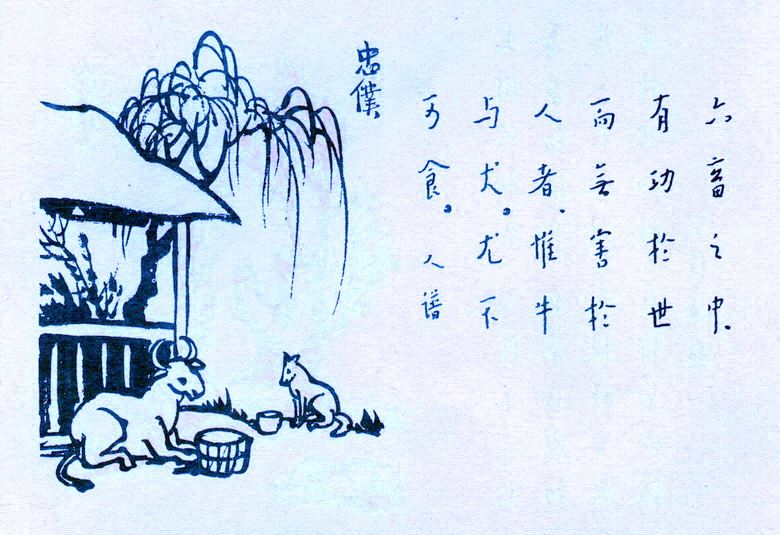 六畜之中.
有功於世
而無害於
人者.惟牛
与犬。尤不
可食。人譜
忠僕